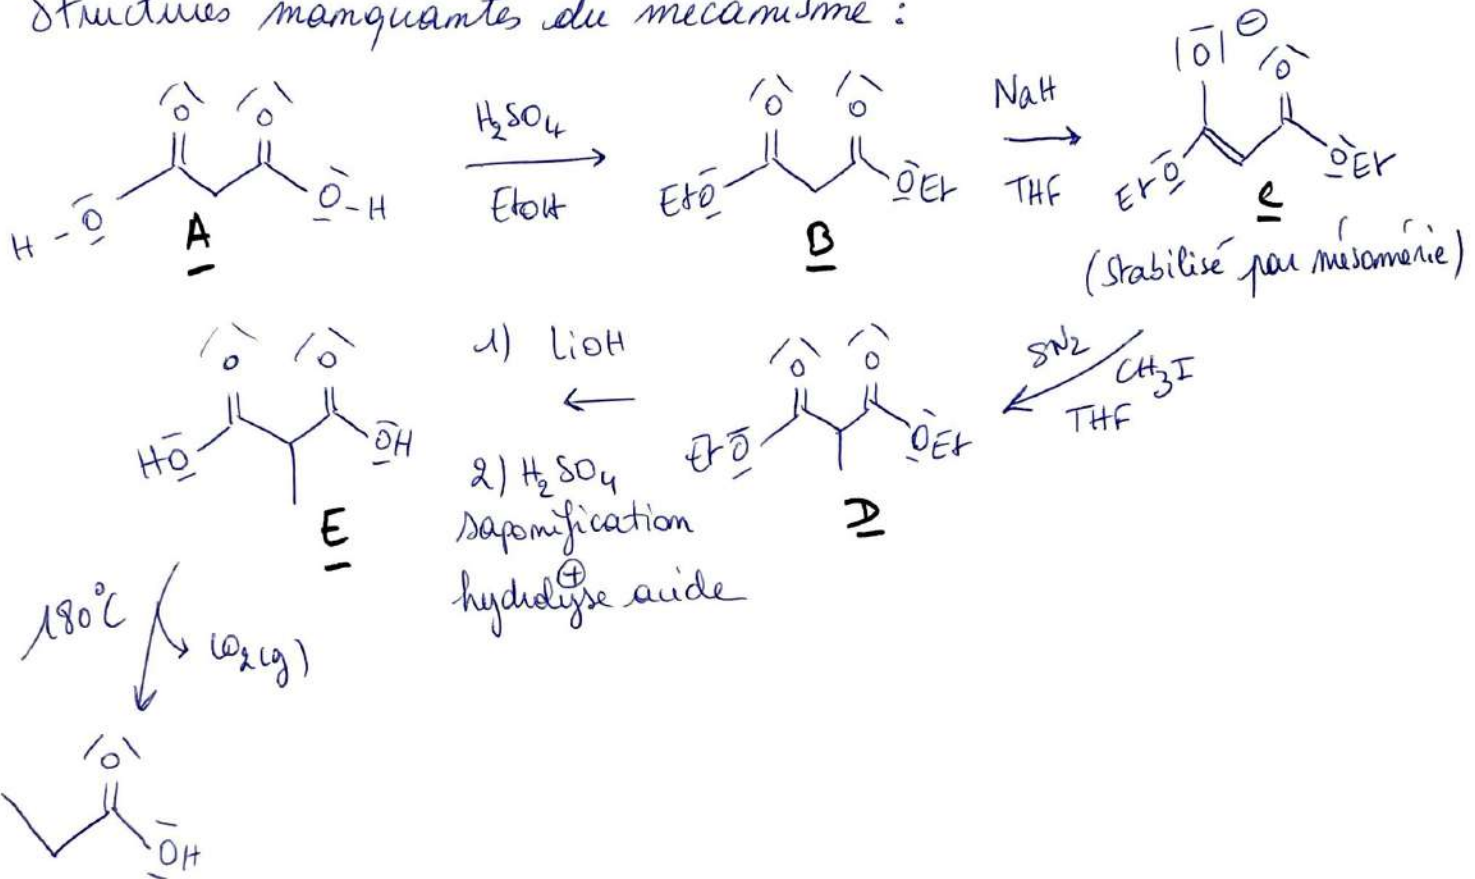 Structures manquantes du mécanisme :
H - O O O O - H
A
H₂SO₄
EtOH
EtO O O OEt
B
NaH
THF
|O| ⊖ O
EtO OEt
C
(Stabilisé par mésomérie)
SN2
CH₃I
THF
EtO O O OEt
D
1) LiOH
2) H₂SO₄
saponification
⊕
hydrolyse acide
HO O O OH
E
180°C
CO₂(g)
O
OH